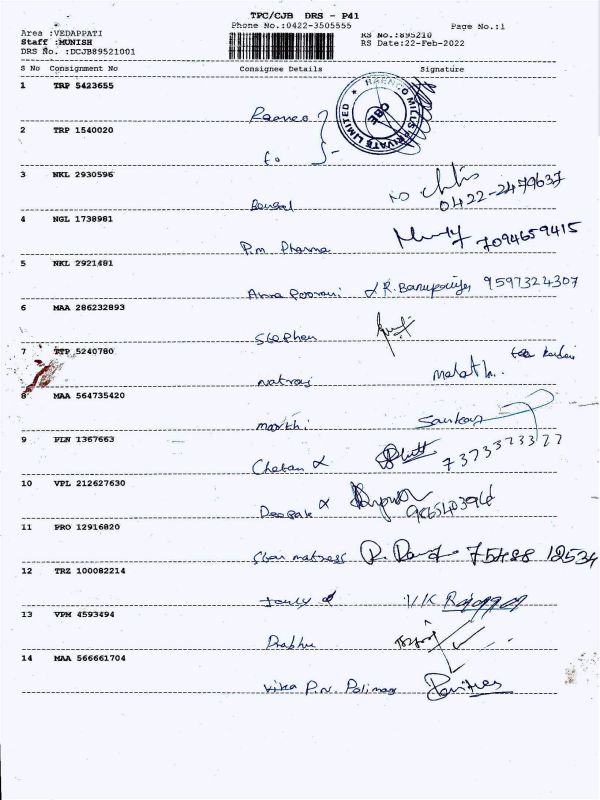 TPC/CJB DRS - P41
Phone No.:0422-3505555
Page No.:1
Area :VEDAPPATI
Staff :MUNISH
RS No.:895210
DRS No. :DCJB89521001
RS Date:22-Feb-2022
S No Consignment No Consignee Details Signature
1 TRP 5423655
RAENCO MILLS PRIVATE LIMITED
CBE
Raenco
2 TRP 1540020
3 NKL 2930596
0422-2479637
Bensal
4 NGL 1738981
7094659415
P.m Pharma
5 NKL 2921481
Anna Poorani 9597324307
6 MAA 286232893
Stephen
7 TTP 5240780
natraj
8 MAA 564735420
Sankar
9 PLN 1367663
Chetan
7373373327
10 VPL 212627630
Deepak
11 PRO 12916820
75488 18534
12 TRZ 100082214
V.K Rajagopal
13 VPM 4593494
Prabhu
14 MAA 566661704
P.N. Palimag